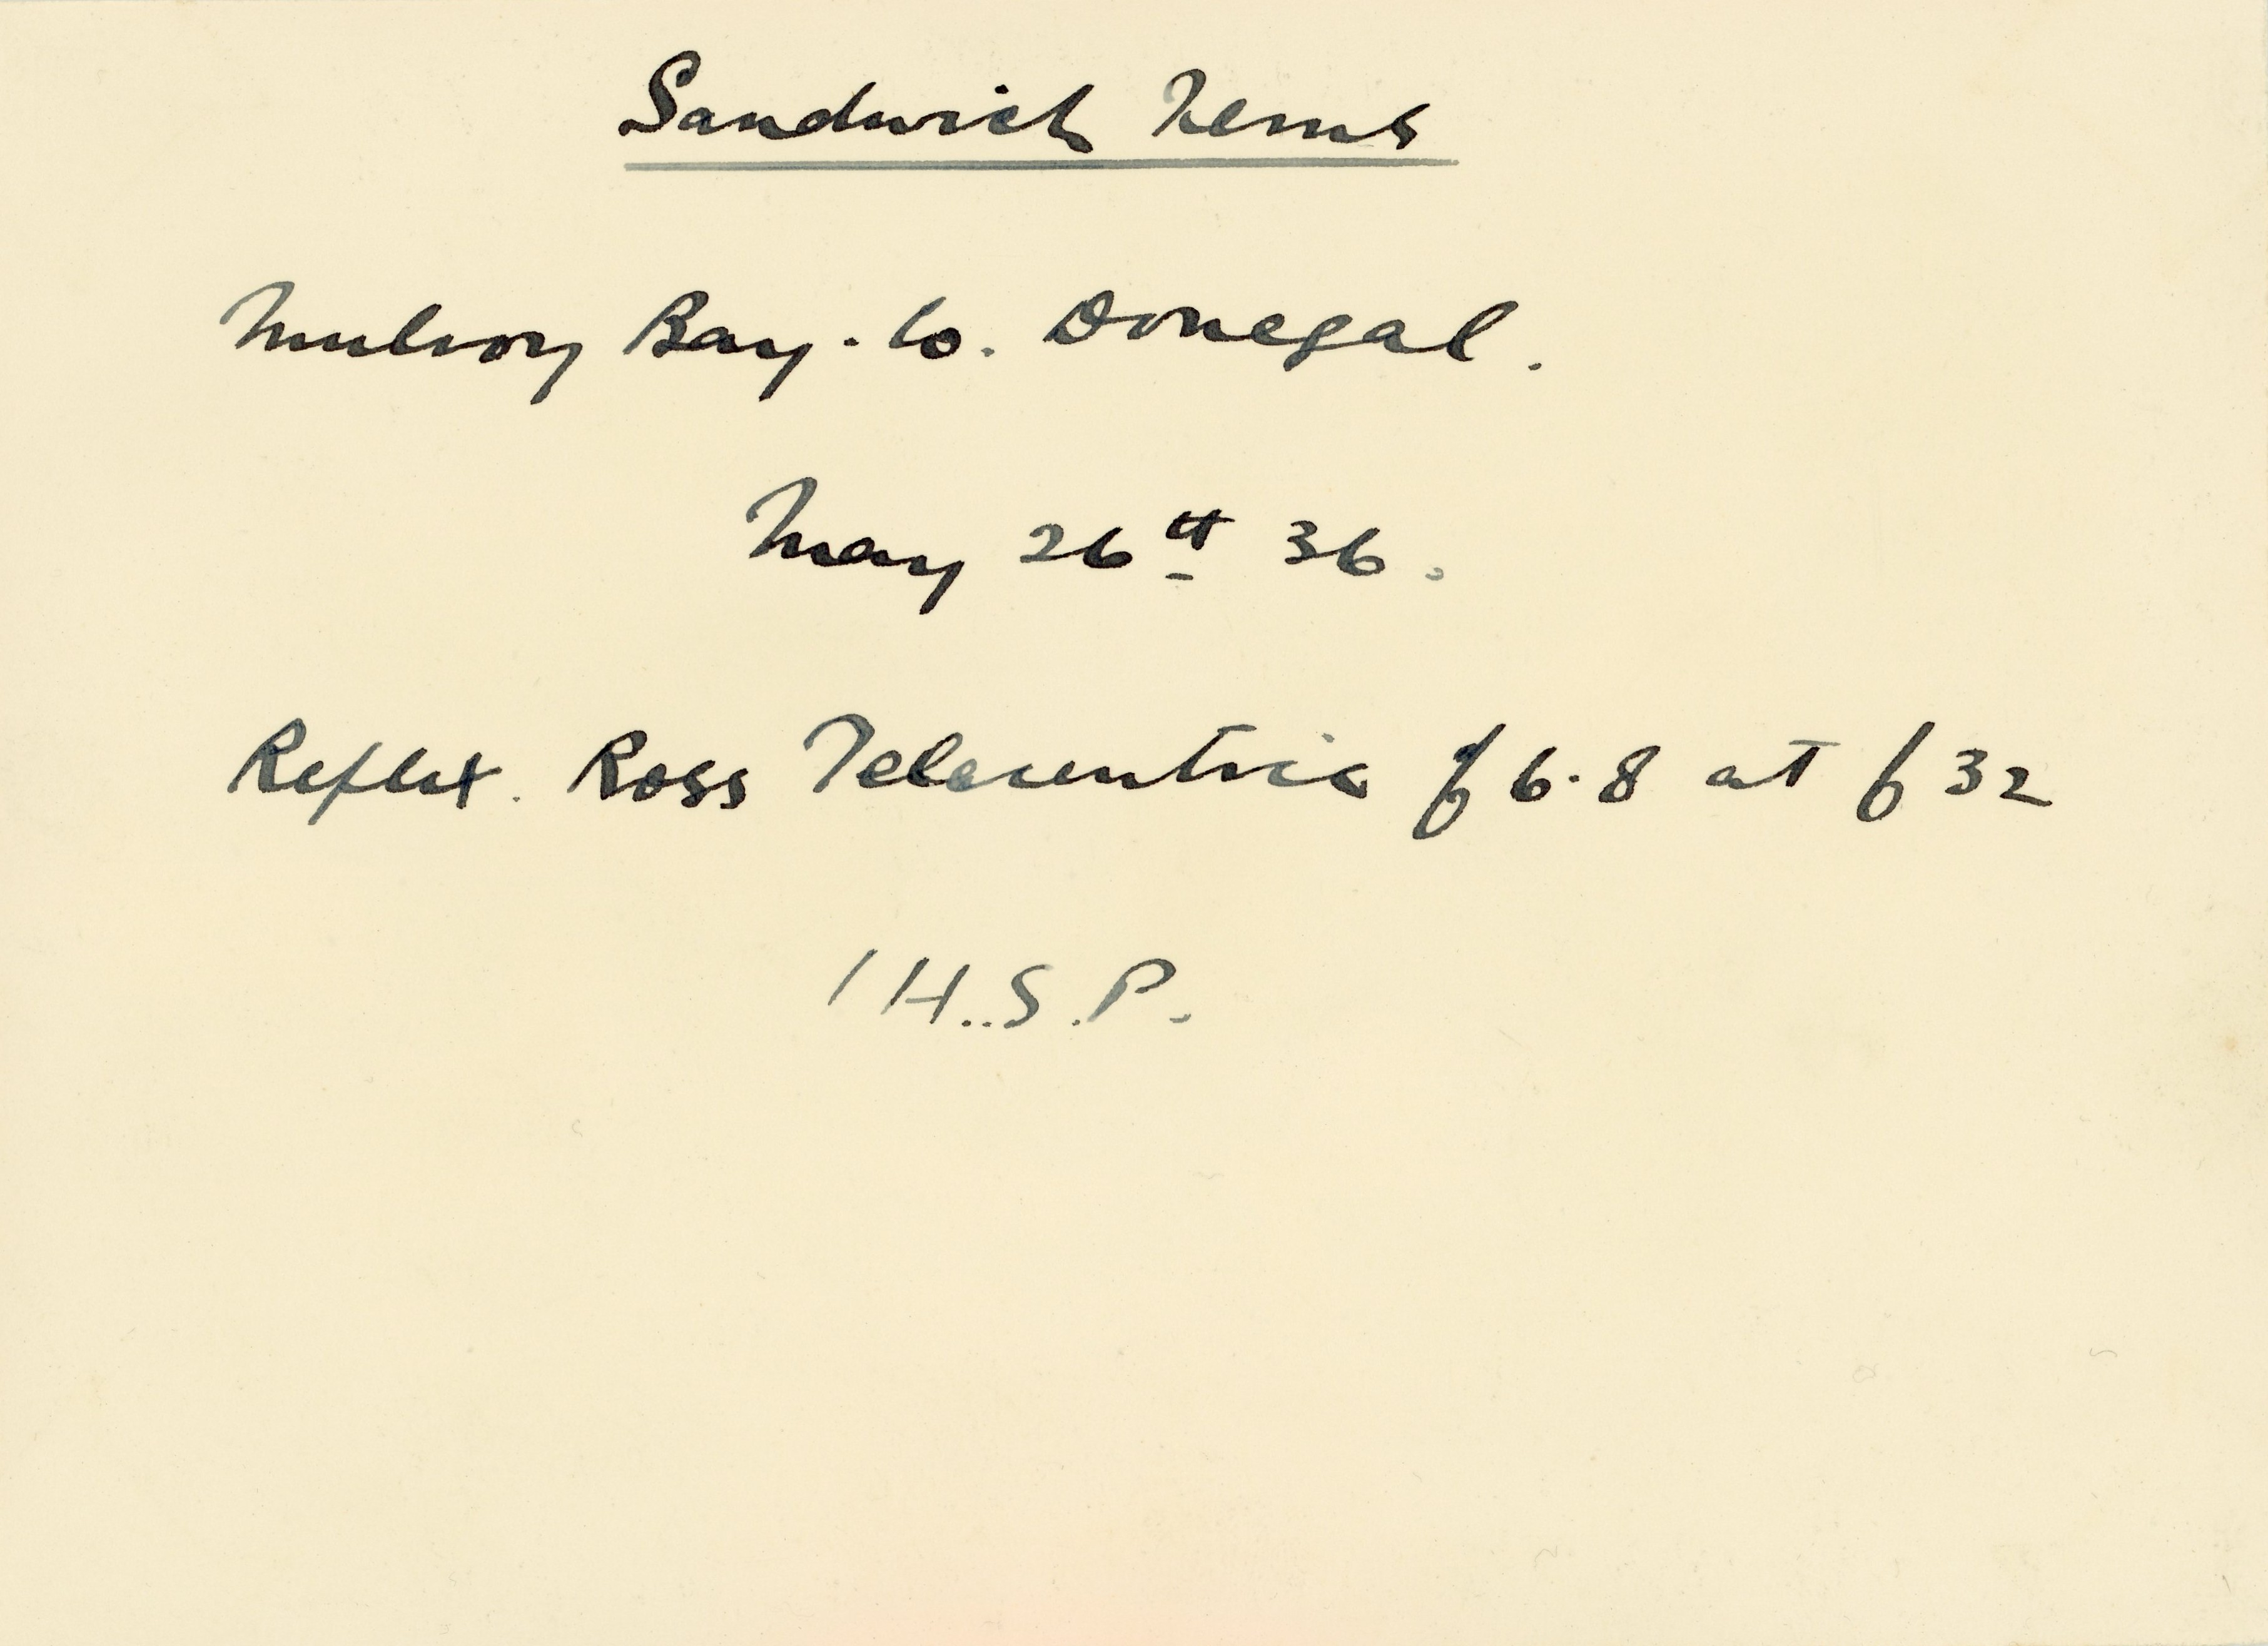 Sandwich Terns
Mulroy Bay. Co. Donegal.
May 26th 36.
Reflex. Ross Telecentric f6.8 at f32
I H..S.P.